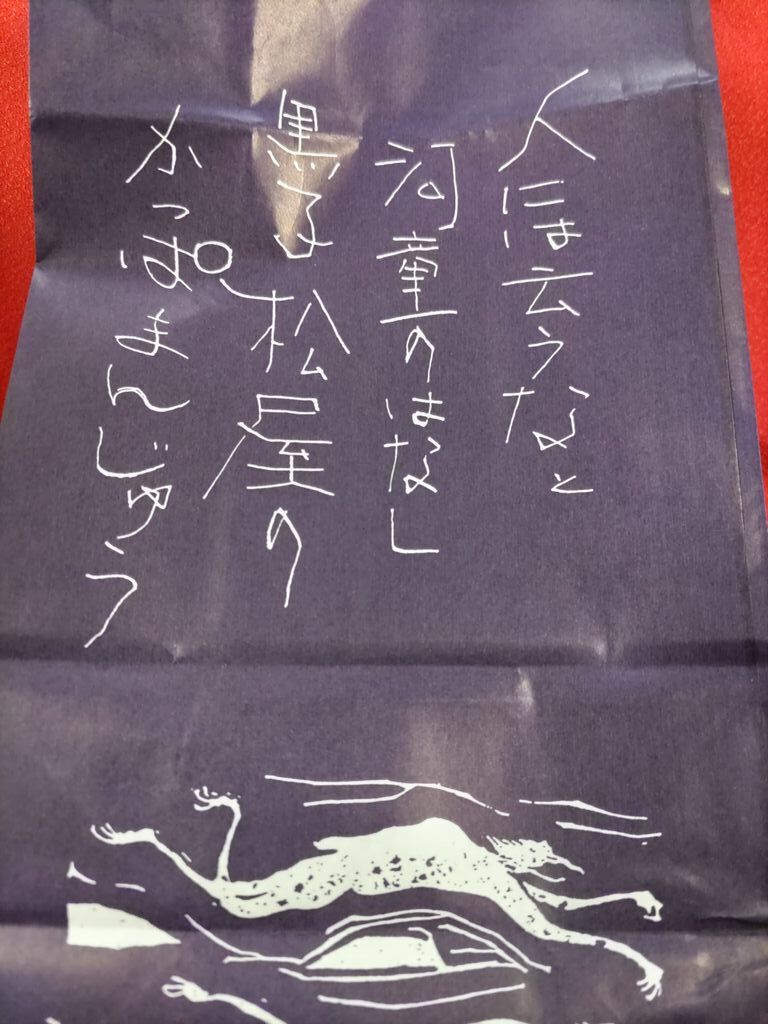 人には云うなと
河童のはなし
黒子松屋の
かっぱまんじゅう